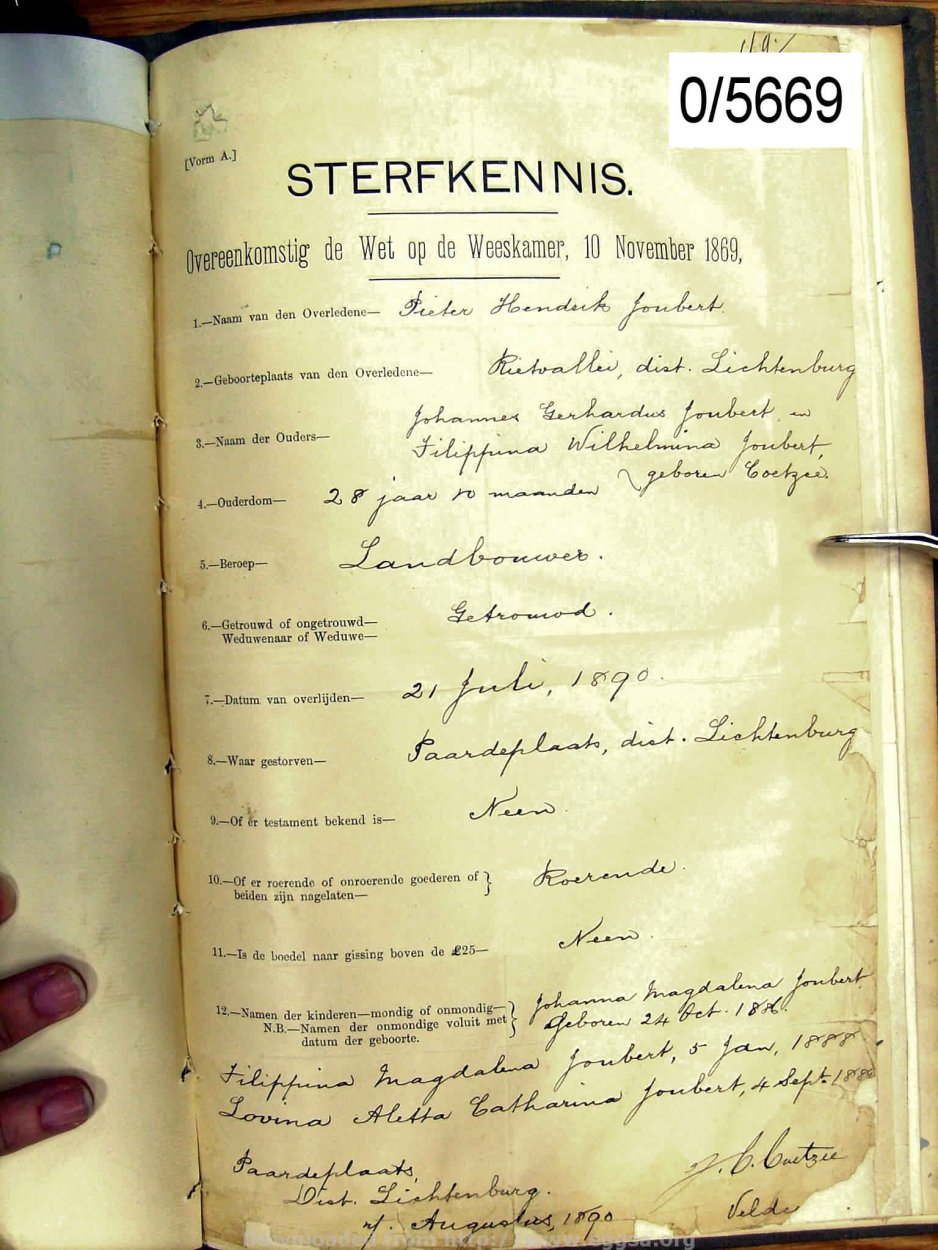 0/5669
[Vorm A.]
STERFKENNIS.
Overeenkomstig de Wet op de Weeskamer, 10 November 1869,
1.—Naam van den Overledene— Pieter Hendrik Joubert.
2.—Geboorteplaats van den Overledene— Rietvallei, dist. Lichtenburg
Johannes Gerhardus Joubert, en
3.—Naam der Ouders— Filippina Wilhelmina Joubert,
geboren Coetzee.
4.—Ouderdom— 28 jaar 10 maanden
5.—Beroep— Landbouwer.
6.—Getrouwd of ongetrouwd— Getrouwd.
Weduwenaar of Weduwe—
7.—Datum van overlijden— 21 Juli, 1890.
8.—Waar gestorven— Paardeplaats, dist. Lichtenburg
9.—Of er testament bekend is— Neen.
10.—Of er roerende of onroerende goederen of } Roerende.
beiden zijn nagelaten—
11.—Is de boedel naar gissing boven de £25— Neen.
12.—Namen der kinderen—mondig of onmondig— } Johanna Magdalena Joubert
N.B.—Namen der onmondige voluit met Geboren 24 Oct. 1886.
datum der geboorte.
Filippina Magdalena Joubert, 5 Jan, 1888
Lovina Aletta Catharina Joubert, 4 Sept.
Paardeplaats, Coetzee
Dist. Lichtenburg.
Augustus, 1890
Downloaded from http://www.eggsa.org